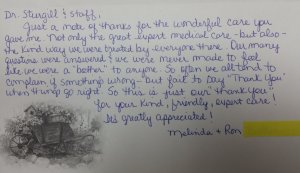 Dr. Sturgill & staff,
Just a note of thanks for the wonderful care you
gave me. Not only the great expert medical care - but also -
the kind way we were treated by everyone there. Our many
questions were answered & we were never made to feel
like we were a "bother" to anyone. So often we all tend to
complain if something's wrong - but fail to say "Thank You"
when things go right. So this is just our "thank you"
for your kind, friendly, expert care!
It's greatly appreciated!
Melinda + Ron